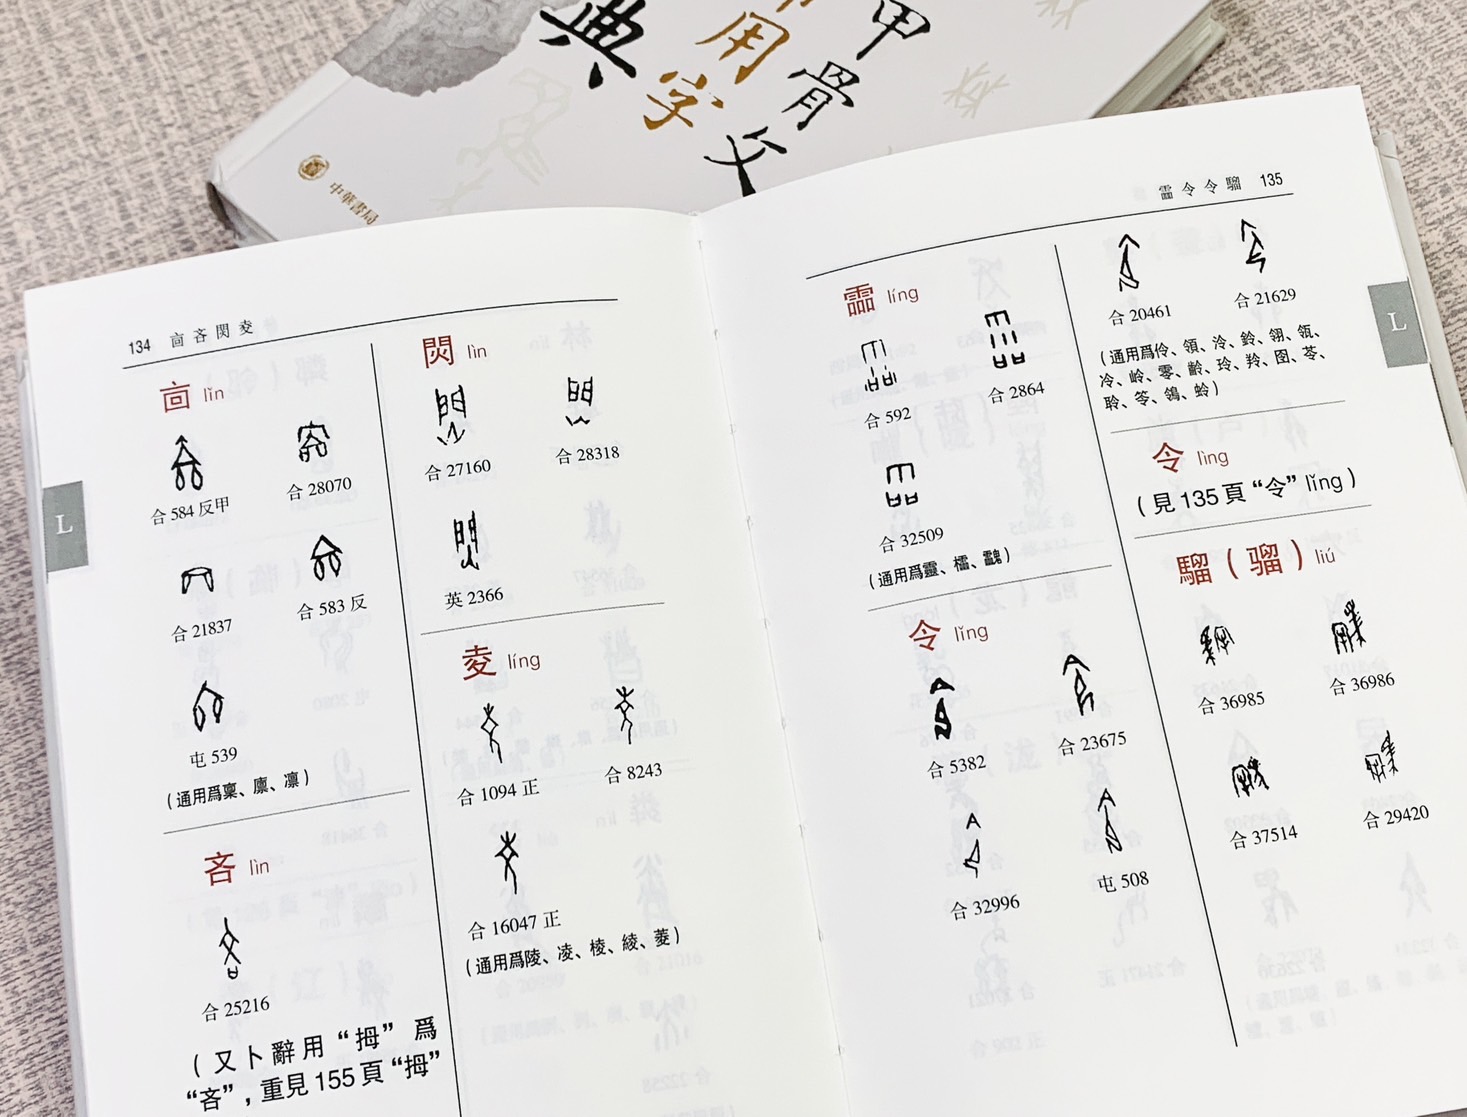 甲骨文
用字
典
中華書局
134 㐭吝閔夌
L
㐭 lǐn
合 584 反甲
合 28070
合 21837
合 583 反
屯 539
(通用爲稟、廪、凛)
吝 lìn
合 25216
(又卜辭用“拇”爲
“吝”,重見155頁“拇”
lìn
合 27160
合 28318
英 2366
夌 líng
合 1094 正
合 8243
合 16047 正
(通用爲陵、凌、棱、綾、菱)
霝令令騮 135
L
霝 líng
合 592
合 2864
合 32509
(通用爲靈、櫺、
令 lǐng
合 5382
合 23675
合 32996
屯 508
合 20461
合 21629
(通用爲伶、領、泠、鈴、翎、瓴、
冷、岭、零、齡、玲、羚、囹、苓、
聆、笭、鴒、蛉)
令 lìng
(見135頁“令” lǐng)
騮(骝) liú
合 36985
合 36986
合 37514
合 29420